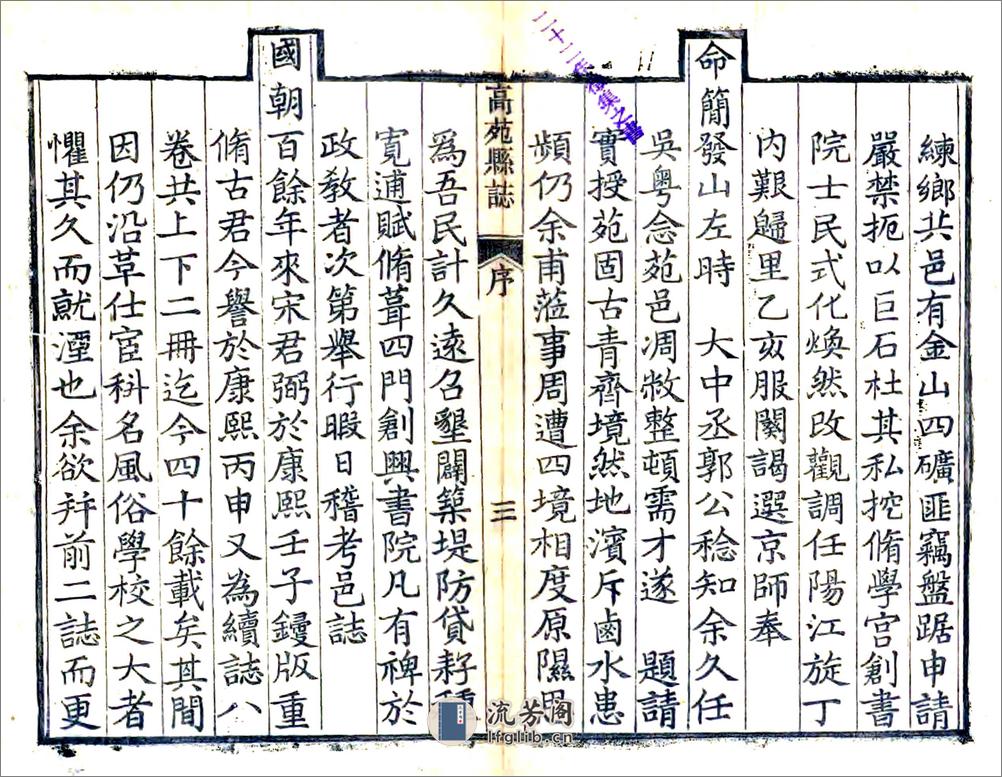 練鄉共邑有金山四礦匪竊盤踞申請
嚴禁扼以巨石杜其私挖脩學宫創書
院士民式化煥然改觀調任陽江旋丁
内艱歸里乙亥服闋謁選京師奉
命簡發山左時　大中丞郭公稔知余久任
吳粤念苑邑凋敝整頓需才遂　題請
實授苑固古青齊境然地濱斥鹵水患
頻仍余甫蒞事周遭四境相度原隰思
高苑縣誌
序
三
爲吾民計久遠召墾闢築堤防貸耔種
寛逋賦脩葺四門創興書院凡有裨於
政敎者次第舉行暇日稽考邑誌
國朝百餘年來宋君弼於康熙壬子鋟版重
脩古君今譽於康熙丙申又為續誌八
卷共上下二冊迄今四十餘載矣其間
因仍沿革仕宦科名風俗學校之大者
懼其久而就湮也余欲幷前二誌而更
流芳阁
lfglib.cn